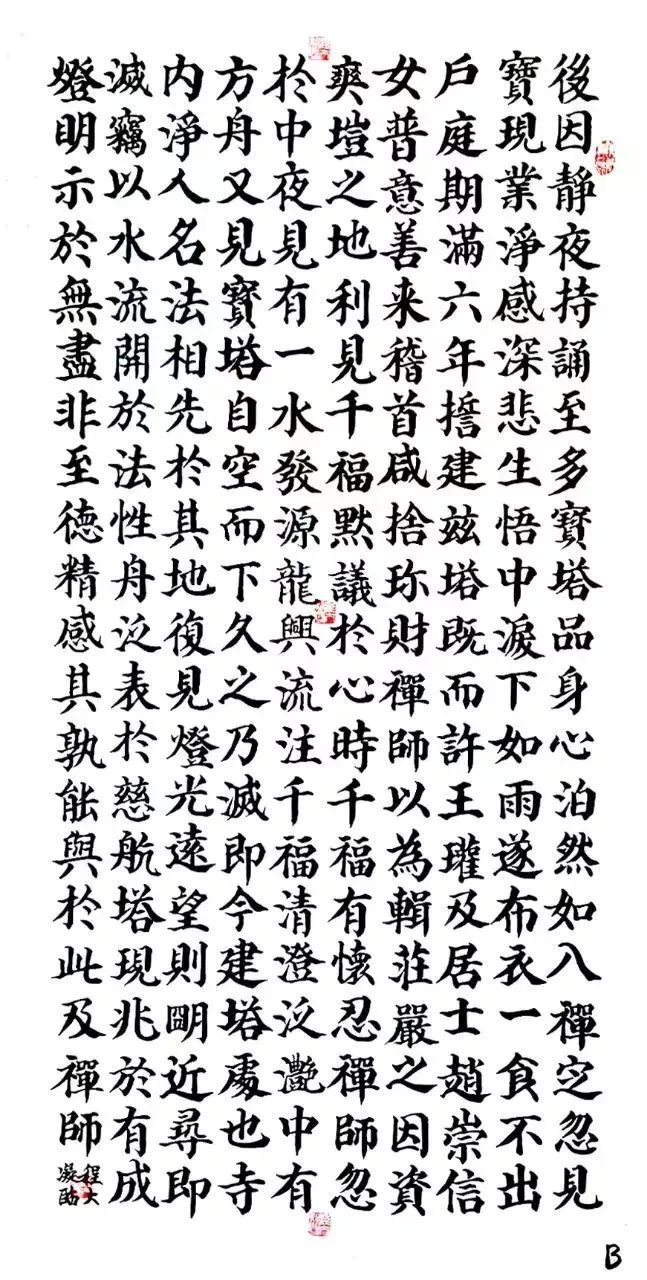 後因靜夜持誦至多寶塔品身心泊然如入禪定忽見
寶現業淨感深悲生悟中淚下如雨遂布衣一食不出
戶庭期滿六年誓建茲塔既而許王瓘及居士趙崇信
女普意善来稽首咸捨珎財禪師以為輯莊嚴之因資
爽塏之地利見千福默議於心時千福有懷忍禪師忽
於中夜見有一水發源龍興流注千福清澄泛灩中有
方舟又見寶塔自空而下久之乃滅即今建塔處也寺
内淨人名法相先於其地復見燈光遠望則明近尋即
滅竊以水流開於法性舟泛表於慈航塔現兆於有成
燈明示於無盡非至德精感其孰能與於此及禪師
程大
B